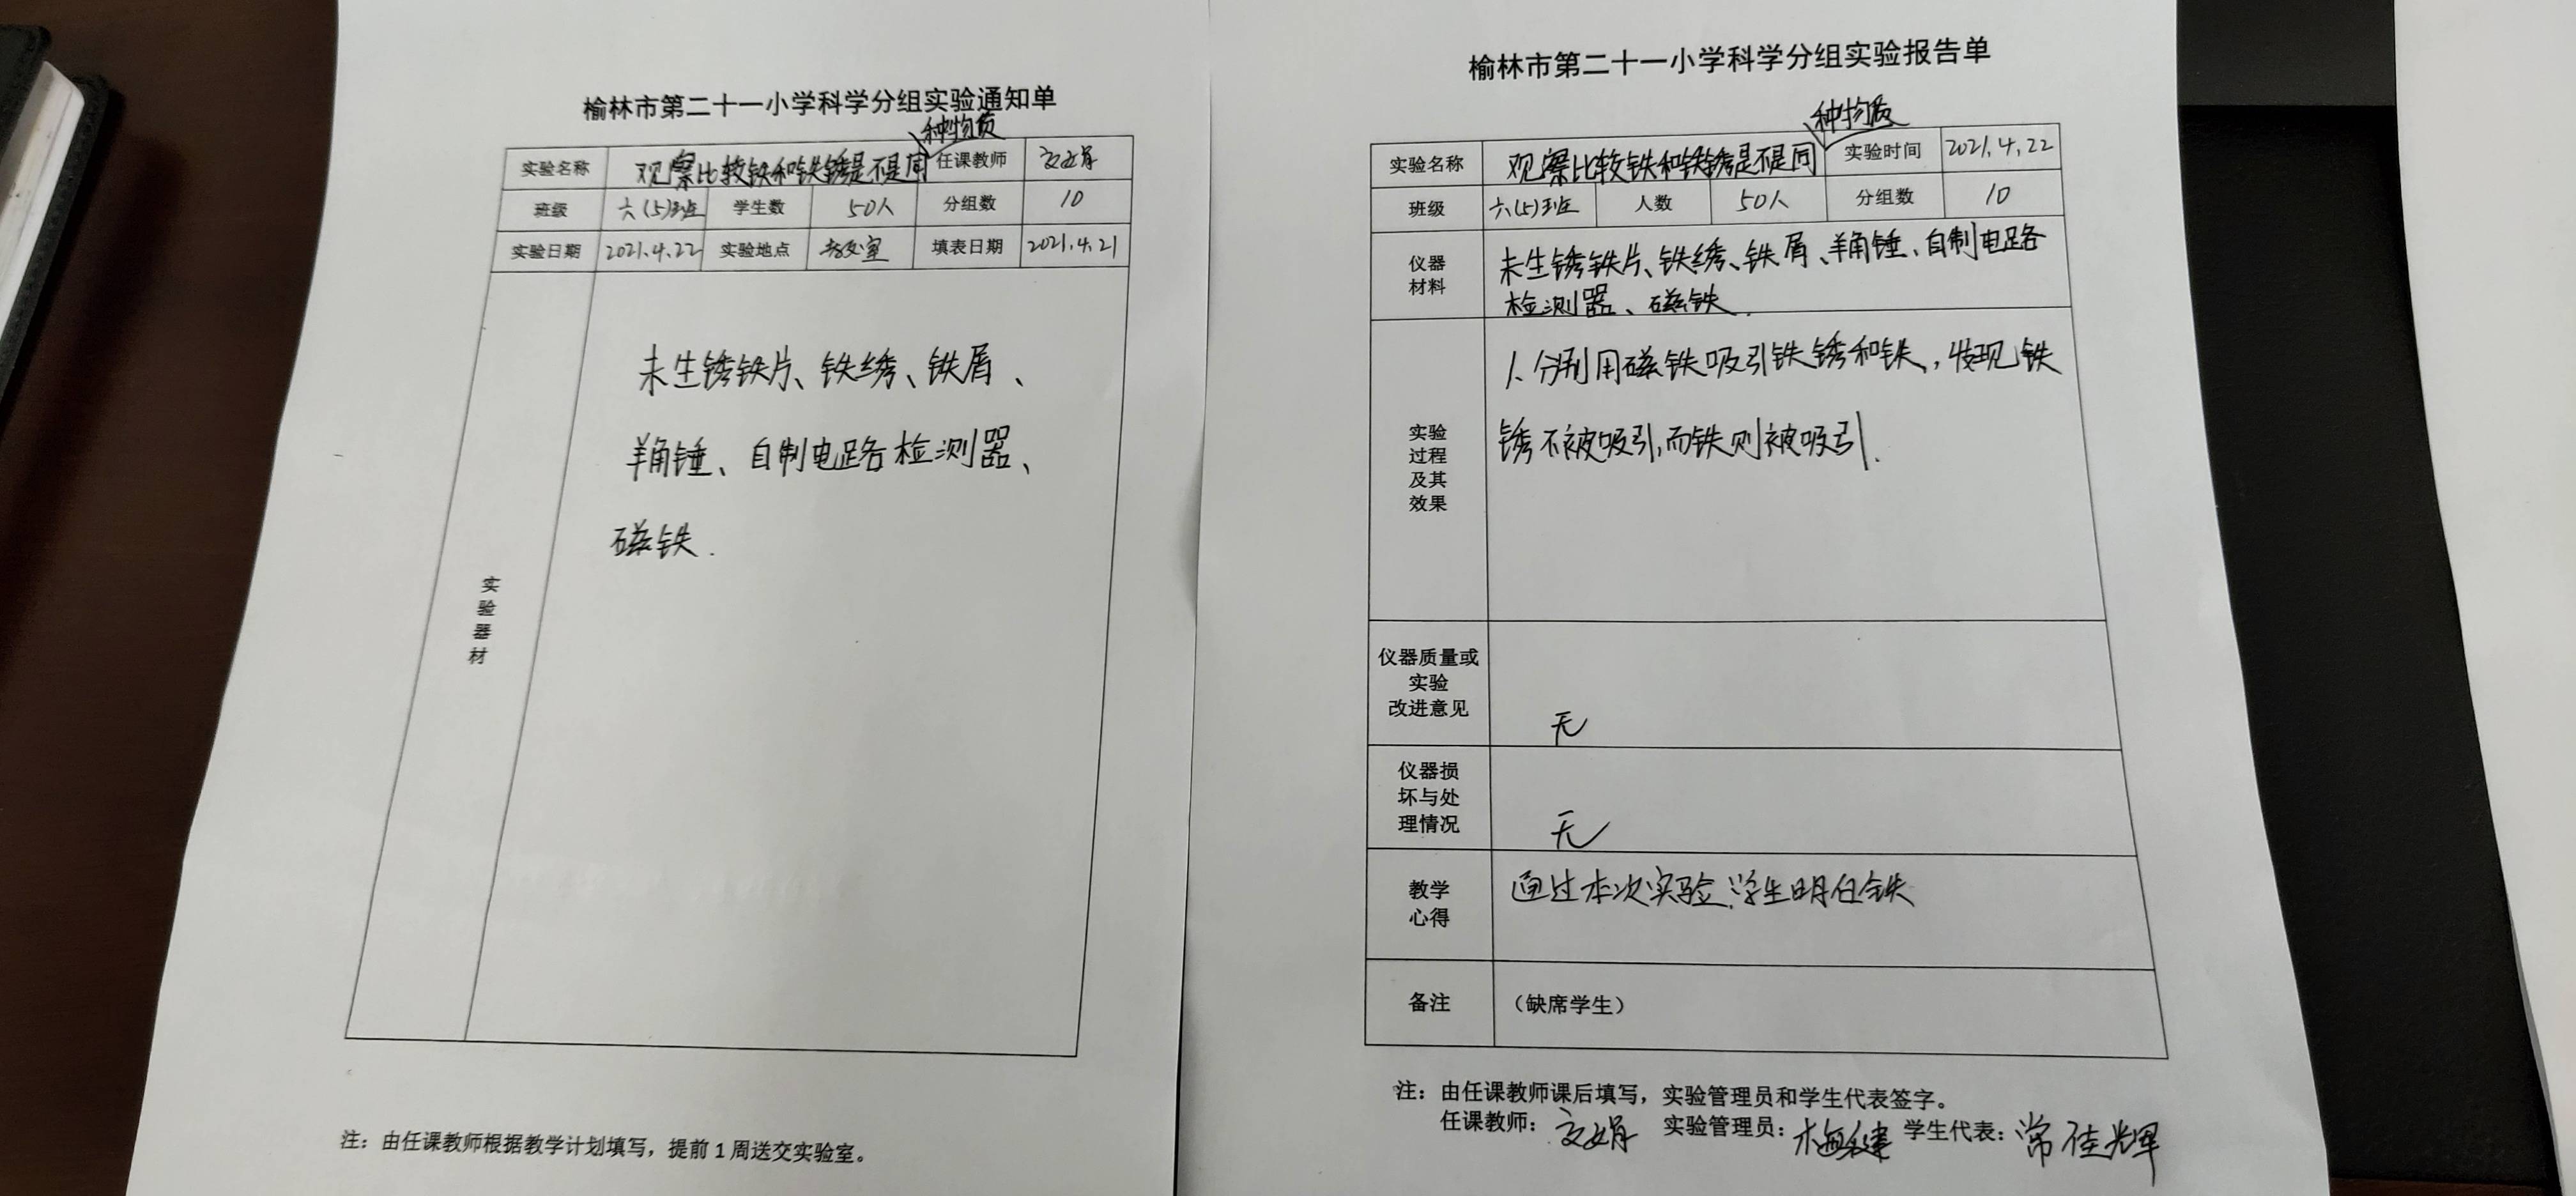 榆林市第二十一小学科学分组实验通知单
种物质
实验名称 观察比较铁和铁锈是不是同 任课教师
班级 六(5)班 学生数 50人 分组数 10
实验日期 2021.4.22 实验地点 教室 填表日期 2021.4.21
实验器材
未生锈铁片、铁绣、铁屑、
羊角锤、自制电路检测器、
磁铁.
注：由任课教师根据教学计划填写，提前1周送交实验室。
榆林市第二十一小学科学分组实验报告单
种物质
实验名称 观察比较铁和铁锈是不是同 实验时间 2021.4.22
班级 六(5)班 人数 50人 分组数 10
仪器
材料
未生锈铁片、铁绣、铁屑、羊角锤、自制电路
检测器、磁铁.
实验
过程
及其
效果
1、分别用磁铁吸引铁锈和铁,发现铁
锈不被吸引,而铁则被吸引.
仪器质量或
实验
改进意见
无
仪器损
坏与处
理情况
无
教学
心得
通过本次实验,学生明白铁
备注 （缺席学生）
注：由任课教师课后填写，实验管理员和学生代表签字。
任课教师： 实验管理员： 学生代表：常佳辉